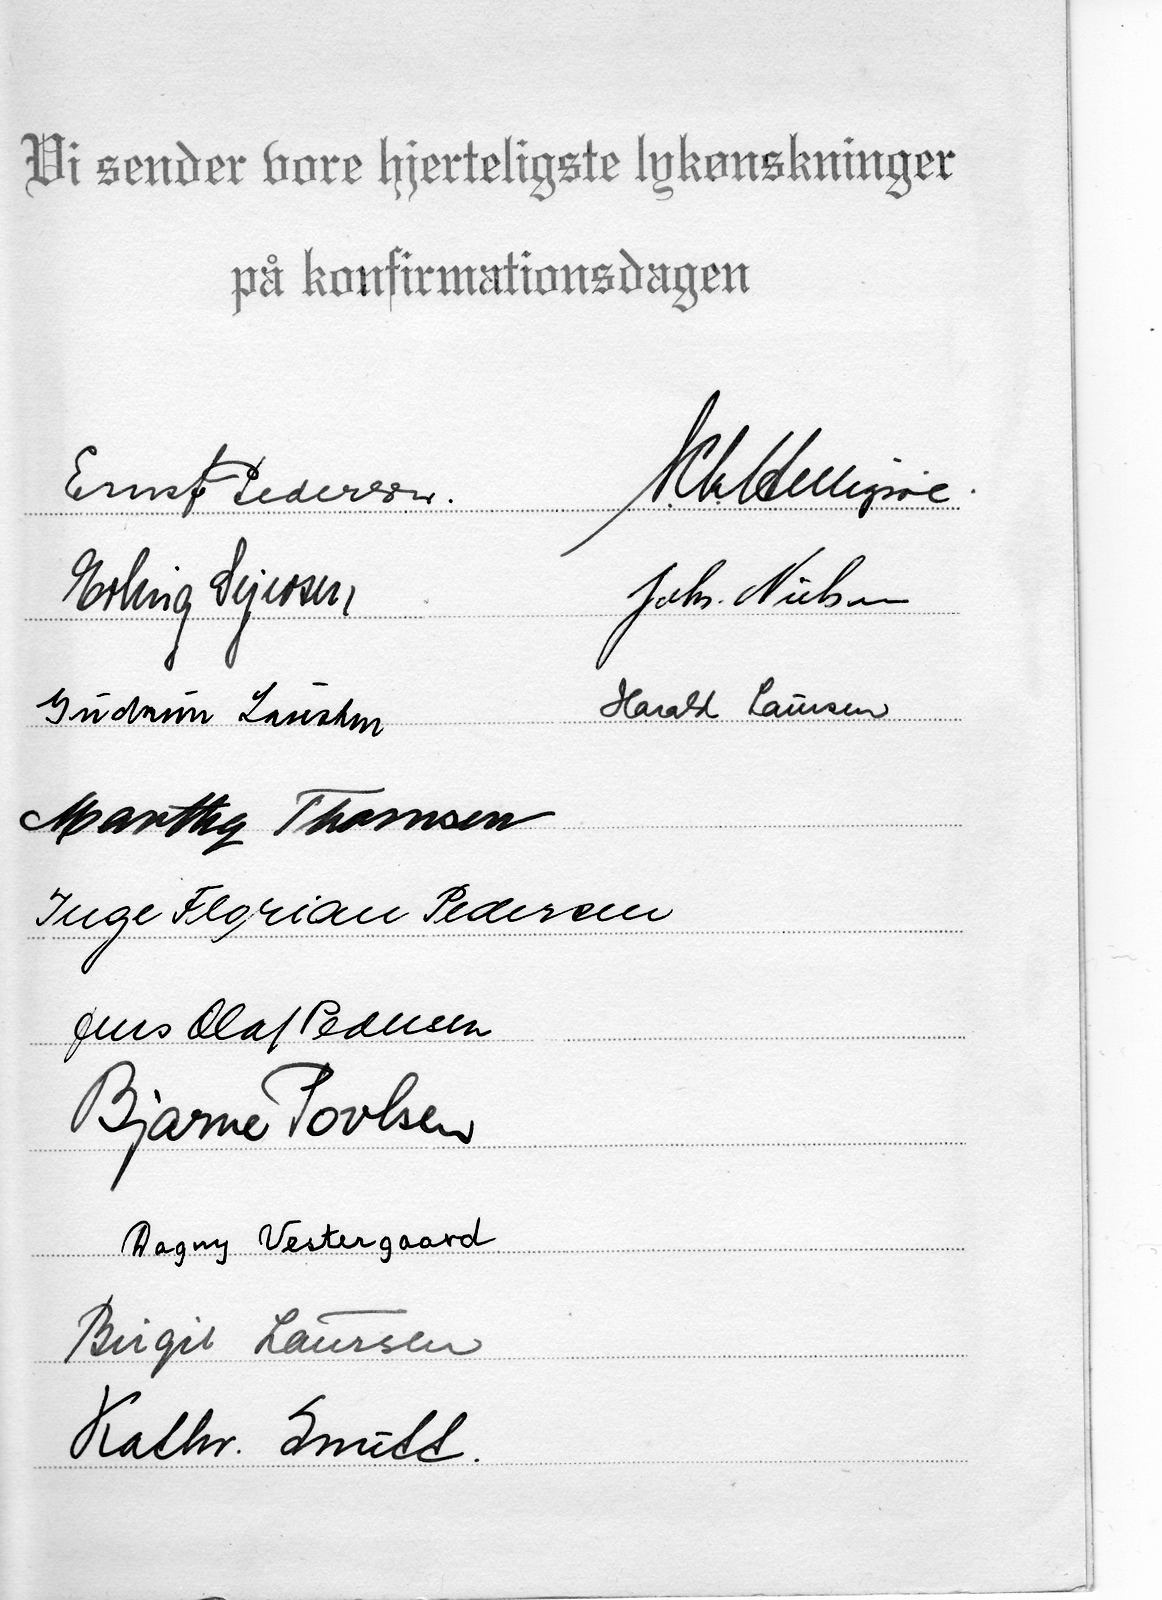 Vi sender vore hjerteligste lykønskninger
på konfirmationsdagen
Ernst Pedersen.
Erling Sejersen
Johs. Nielsen
Gudrun Laursen
Harald Laursen
Martha Thomsen
Inge Florian Pedersen
Jens Olaf Pedersen
Bjarne Povlsen
Dagny Vestergaard
Birgit Laursen
Kathr. Smidt.